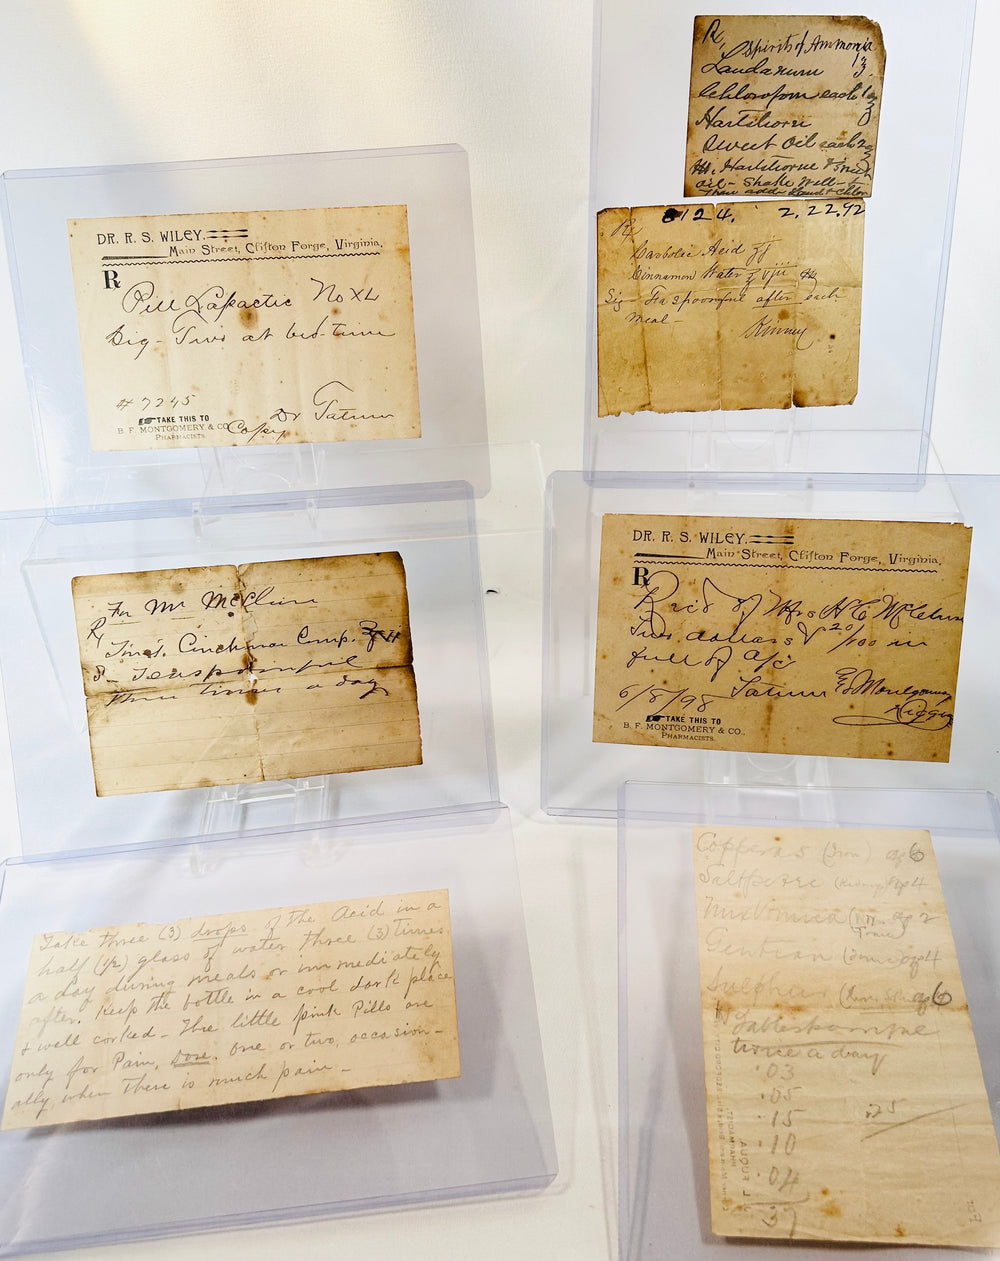 DR. R. S. WILEY.
Main Street, Clifton Forge, Virginia.
R
Pill Lapactic No XL
Sig - Two at bed-time
# 7245
Dr Tatum
Copy
TAKE THIS TO
B. F. MONTGOMERY & CO
PHARMACISTS.
Rx Spirits of Ammonia
Laudanum
Chloroform each
Hartshorn
Sweet Oil each
Hartshorne & Sweet
oil - Shake Well -
Then add Laud & Chlor
8124. 2.22.92
Rx
Carbolic Acid
Cinnamon Water
Sig - Teaspoonful after each
meal -
Kinney
For Mr McClure
R
Tinct. Cinchona Comp.
S - Teaspoonful
three times a day
DR. R. S. WILEY.
Main Street, Clifton Forge, Virginia.
R
Rec'd of Mrs H C McClure
Two dollars & 20/100 in
full of a/c
6/8/98 Tatum
Montgomery
TAKE THIS TO
B. F. MONTGOMERY & CO.,
PHARMACISTS.
Take three (3) drops of the Acid in a
half (1/2) glass of water three (3) times
a day during meals or immediately
after. Keep the bottle in a cool dark place
& well corked - The little pink Pills are
only for Pain, Dose. one or two, occasion-
ally, when there is much pain -
Copperas (Iron) 6
Saltpetre 4
Nux Vomica 2
Tonic
Gentian 4
Sulphur 6
twice a day
.03
.05
.15 .25
.10
.04
37
L. FUQUA
PHARMACIST
For